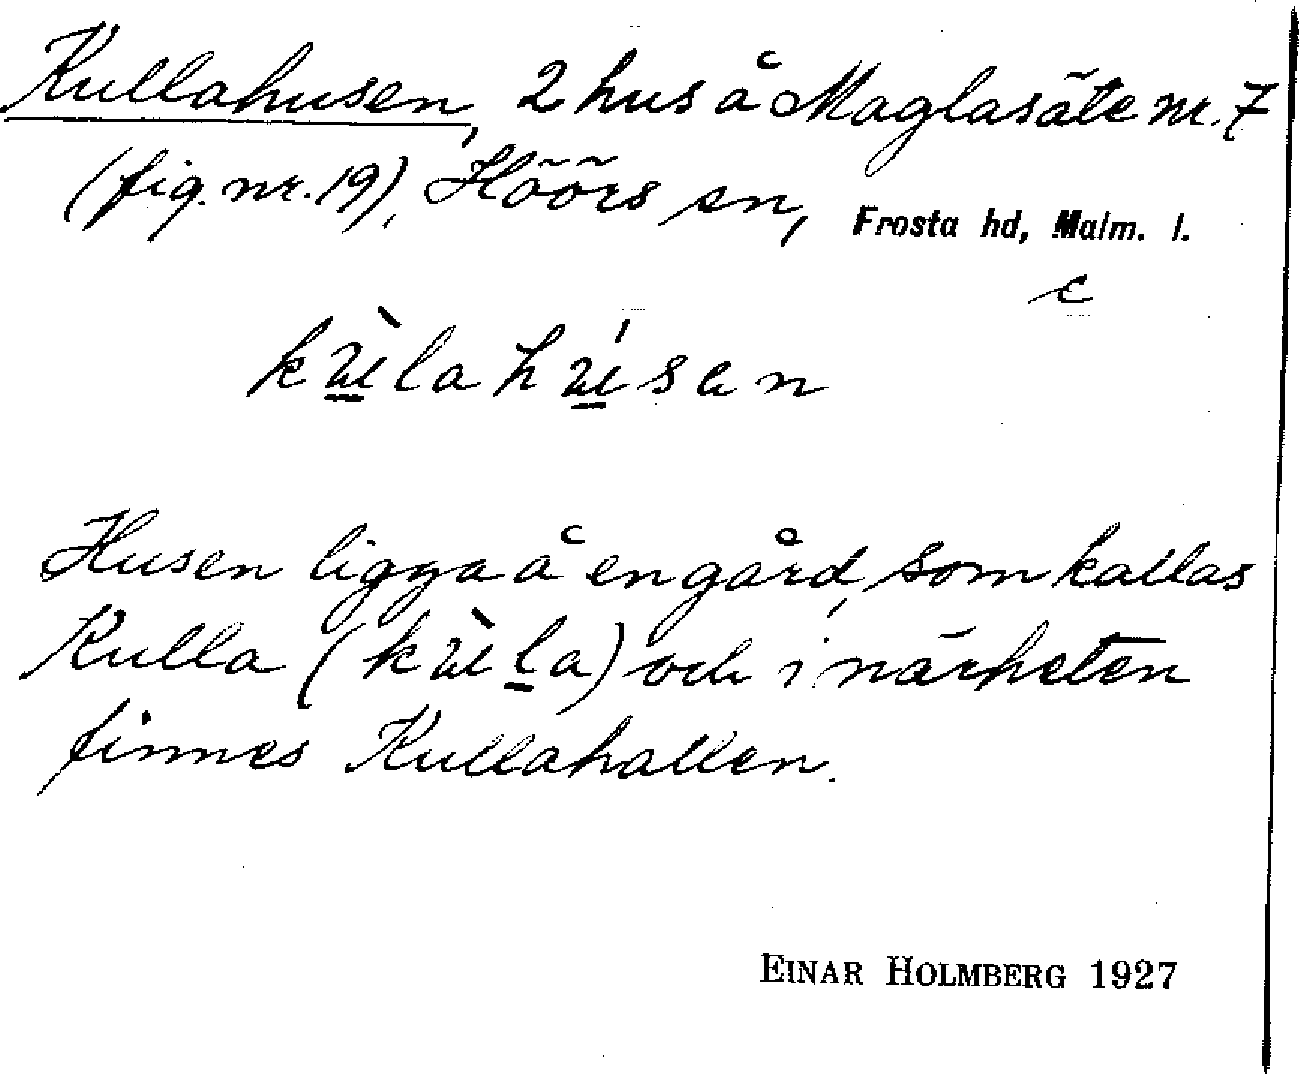 Kullahusen, 2 hus å Maglasäte nr. 7
(fig. nr. 19), Höörs sn, Frosta hd, Malm. l.
c
kùlahúsen
Husen ligga å en gård, som kallas
Kulla (kùla) och i närheten
finnes Kullahallen.
EINAR HOLMBERG 1927